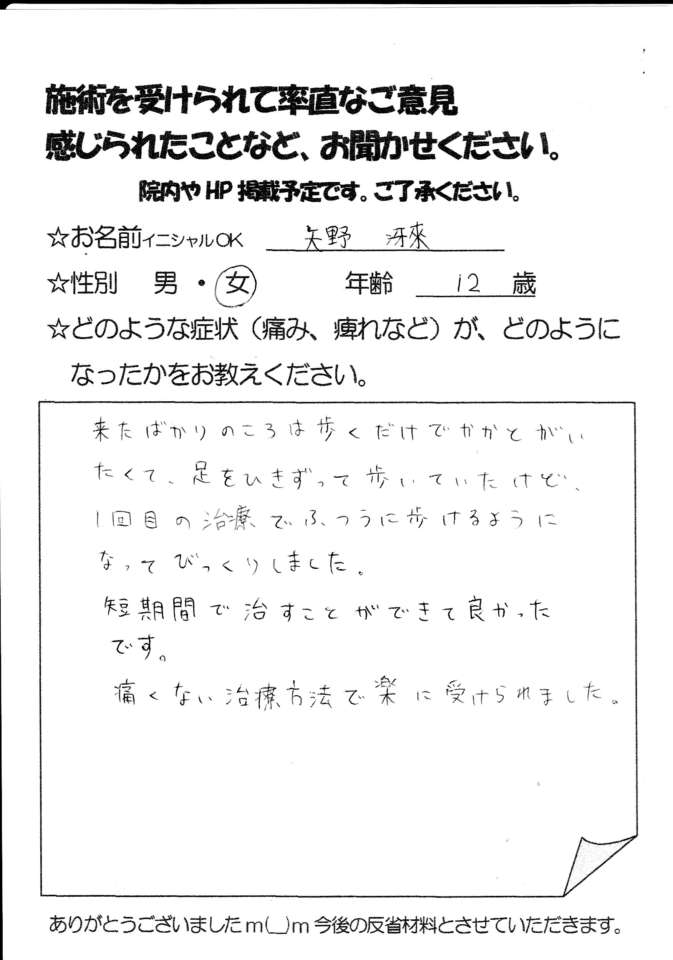 施術を受けられて率直なご意見
感じられたことなど、お聞かせください。
院内やHP掲載予定です。ご了承ください。
☆お名前イニシャルOK 矢野 冴來
☆性別 男・女 年齢 12 歳
☆どのような症状（痛み、痺れなど）が、どのように
なったかをお教えください。
来たばかりのころは歩くだけでかかとがい
たくて、足をひきずって歩いていたけど、
1回目の治療でふつうに歩けるように
なってびっくりしました。
短期間で治すことができて良かった
です。
痛くない治療方法で楽に受けられました。
ありがとうございましたm(__)m今後の反省材料とさせていただきます。